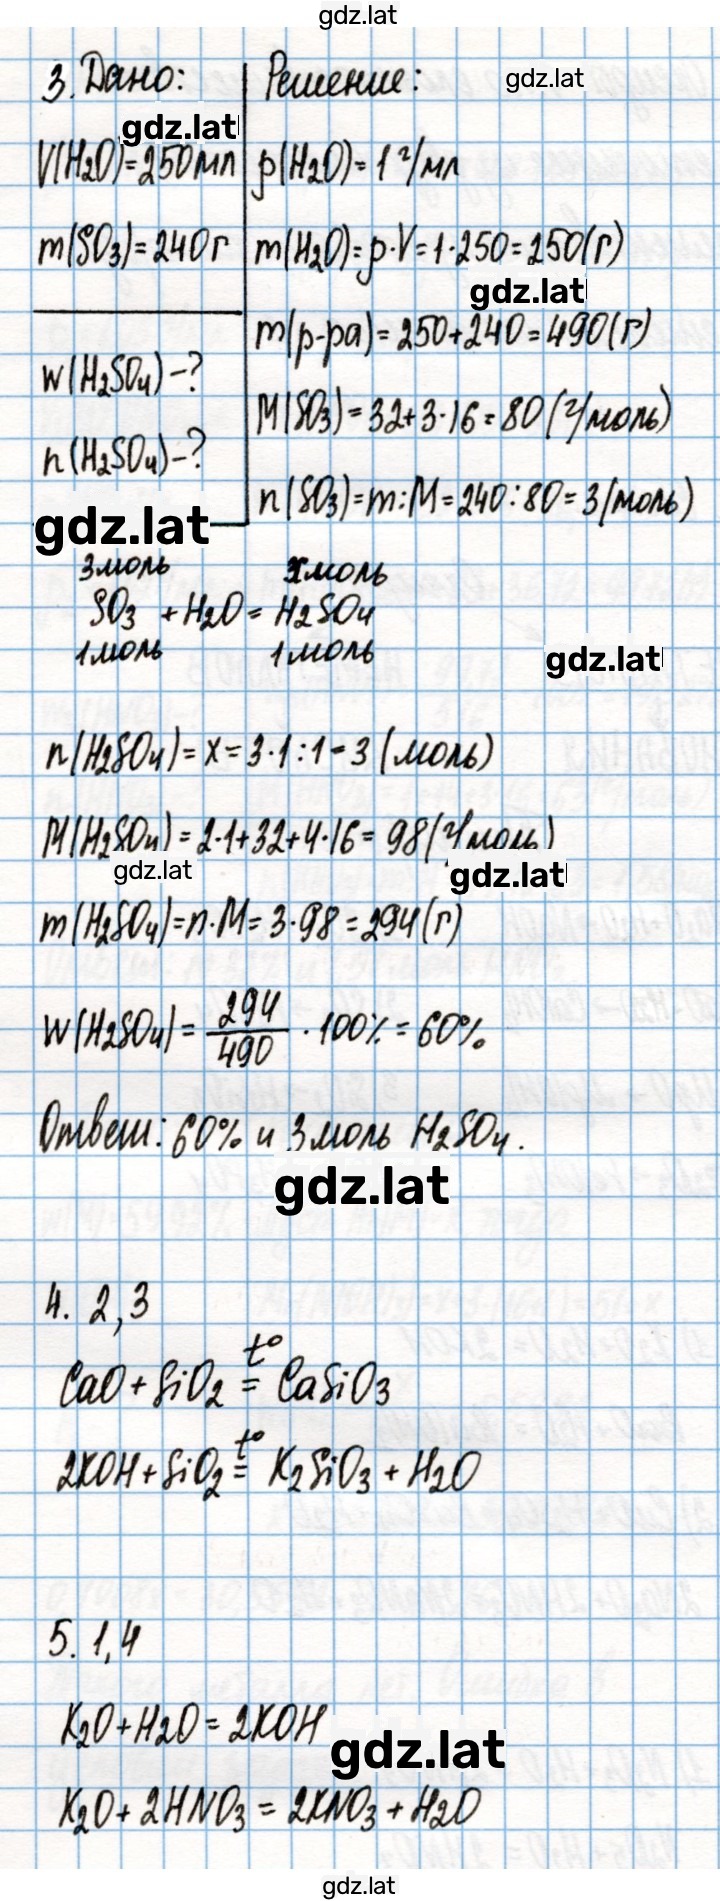 gdz.lat
3. Дано:
Решение:
gdz.lat
gdz.lat
V(H2O)=250мл
p(H2O)=1 г/мл
m(SO3)=240г
m(H2O)=p·V=1·250=250(г)
gdz.lat
m(р-ра)=250+240=490(г)
w(H2SO4)-?
M(SO3)=32+3·16=80(г/моль)
n(H2SO4)-?
n(SO3)=m:M=240:80=3(моль)
gdz.lat
3моль xмоль
SO3 +H2O= H2SO4
1моль 1моль
gdz.lat
n(H2SO4)=x=3·1:1=3 (моль)
M(H2SO4)=2·1+32+4·16=98(г/моль)
gdz.lat
gdz.lat
m(H2SO4)=n·M=3·98=294(г)
w(H2SO4)= 294/490 ·100%=60%
Ответ: 60% и 3 моль H2SO4.
gdz.lat
4. 2,3
t°
CaO+SiO2 = CaSiO3
t°
2KOH+SiO2= K2SiO3+H2O
5. 1,4
K2O+H2O=2KOH
gdz.lat
K2O+2HNO3=2KNO3+H2O
gdz.lat